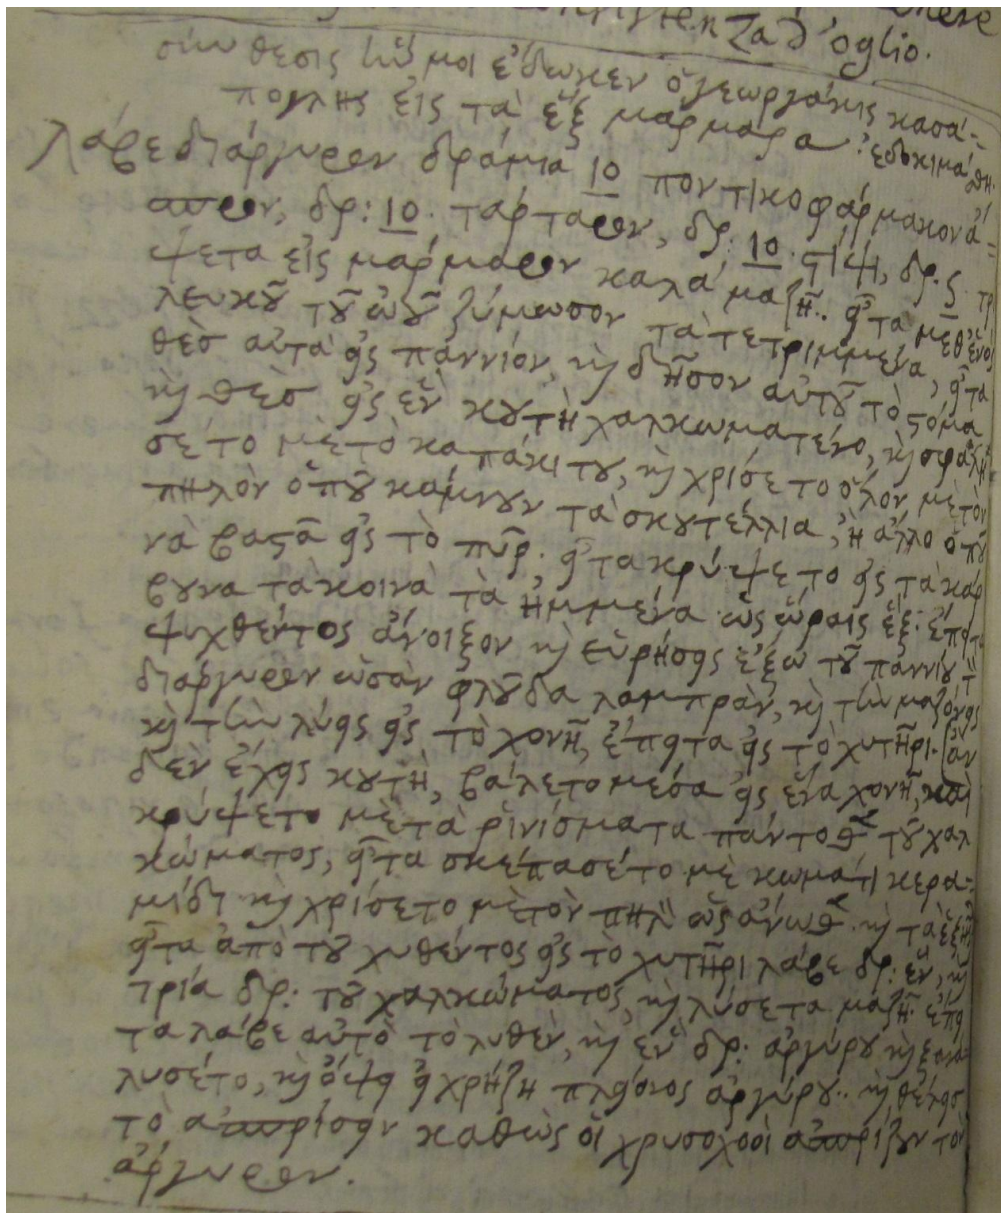 Za d'oglio.
σύνθεσις ἣν μοι ἔδωκεν ὁ γεωργάκις κασά-
πογλης εἰς τὰ ἓξ μάρμαρα· ἐδοκιμάσθη.
λάβε διάργυρον δράμια 10 ποντικοφάρμακον ἄ-
σπρον, δρ: 10. τάρταρον, δρ: 10. στίψι, δρ: ς. τρ
ψετα εἰς μάρμαρον καλὰ μαζῆ. εἶτα μεθ' ἑνὸς
λευκοῦ τοῦ ὠοῦ ζύμωσον τὰ τετριμμένα, εἶτα
θὲς αὐτὰ εἰς παννίον, καὶ δῆσον αὐτοῦ τὸ στόμα
καὶ θὲς εἰς ἓν κουτὴ χαλκωματένο, καὶ σφάλη-
σέ το μὲ τὸ καπάκι του, καὶ χρίσε το ὅλον μὲ τὸν
πηλὸν ὁποῦ κάμνουν τὰ σκουτέλλια, ἢ ἄλλο ὁποῦ
νὰ βαστᾶ εἰς τὸ πῦρ. εἶτα κρύψε το εἰς τὰ κάρ
βουνα τὰ κοινὰ τὰ ἡμμένα ὡς ὥραις ἕξ· ἔπειτα
ψυχθέντος ἄνοιξον καὶ εὑρήσεις ἔξω τοῦ παννίου τὸ
διάργυρον ὡσὰν φλοῦδα λαμπρὰν, καὶ τὴν μαζόνεις
καὶ τὴν λύεις εἰς τὸ χονῆ, ἔπειτα εἰς τὸ χυτῆρι. [ἂν
δὲν ἔχεις κουτὴ, βάλε το μέσα εἰς ἕνα χονῆ, καὶ
κρύψε το μὲ τὰ ῥινίσματα πάντοθεν τοῦ χαλ
κώματος, εἶτα σκέπασέ το μὲ κωμάτι κερα-
μίδι καὶ χρίσε το μὲ τὸν πηλὸν ὡς ἄνωθεν καὶ τὰ ἑξῆς
εἶτα ἀπὸ τοῦ χυθέντος εἰς τὸ χυτῆρι λάβε δρ: ἓν, καὶ
τρία δρ: τοῦ χαλκώματος, καὶ λύσε τα μαζῆ· ἔπει
τα λάβε αὐτὸ τὸ λυθὲν, καὶ ἓν δρ: ἀργύρου καὶ ξανα
λυσέ το, καὶ ὄψει εἰ χρῄζῃ πλείονος ἀργύρου.. καὶ θέλεις
τὸ ἀσπρίσειν καθὼς οἱ χρυσοχόοι ἀσπρίζουν τὸν
ἄργυρον.